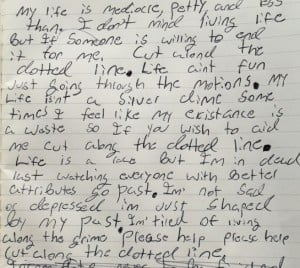 My life is mediocre, petty, and less
than, I don't mind living life
But if someone is willing to end
it for me. Cut along the
dotted line. Life aint fun
Just going through the motions. My
Life isnt a silver dime some
times I feel like my existance is
a waste so if you wish to aid
me cut along the dotted line.
Life is a race but I'm in dead
last watching everyone with better
attributes go past. I'm not sad
or depressed im Just shaped
by my past. I'm tired of living
along the grime please help please help
Cut along the dotted line